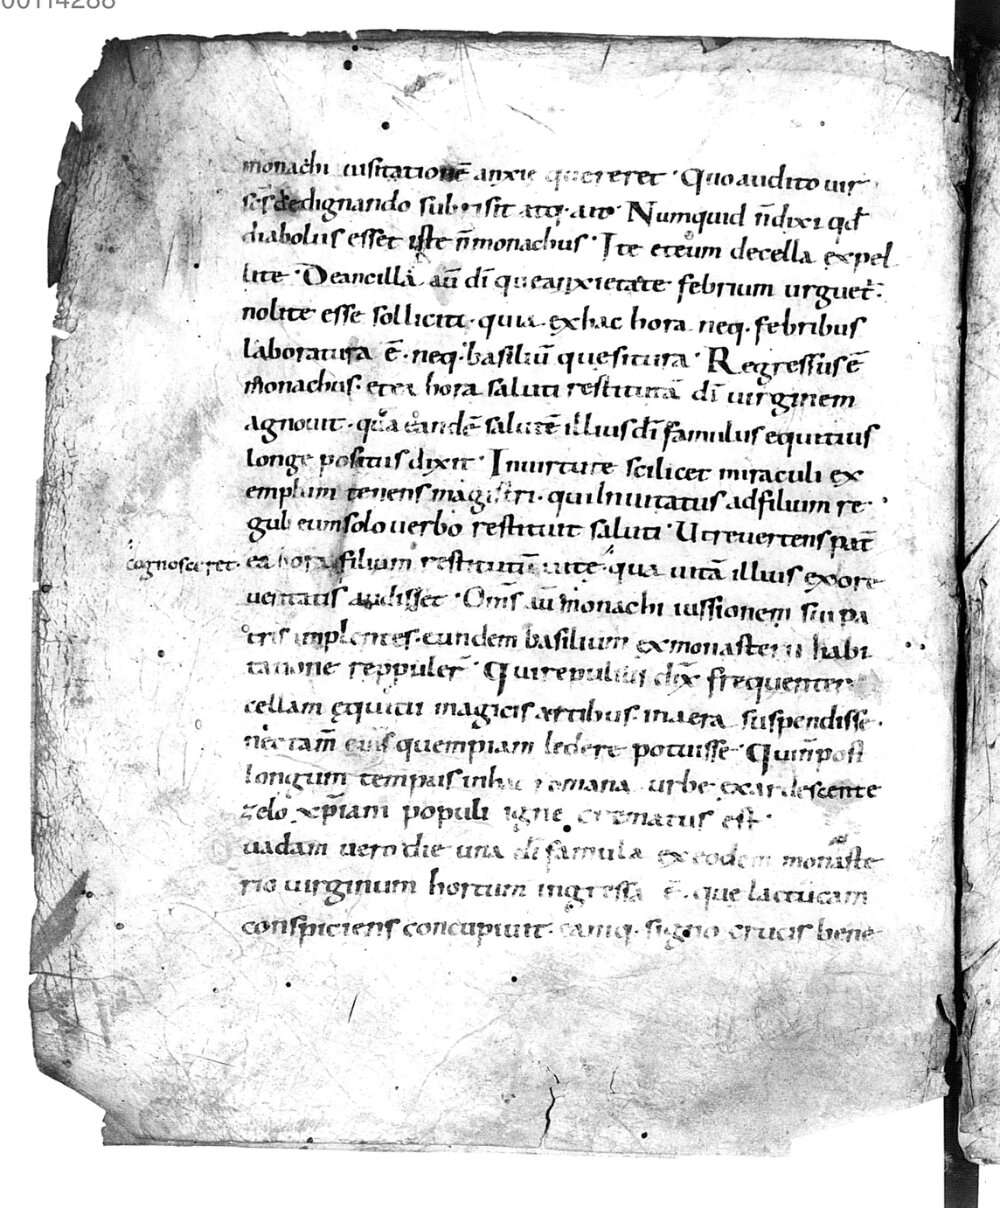 00114288
monachi uisitationē anxie quereret · Quo audito uir
scs̄ dedignando subrisit atq · ait · Numquid n̄ dixi qđ
diabolus esset iste n̄ monachus · Ite et eum de cella expel
lite · De ancilla aū di que anxietate febrium urguet̄ :
nolite esse solliciti · quia ex hac hora neq · febribus
laboratura ē · neq · basiliū quesitura · Regressus ē
monachus · et ea hora saluti restitutā di uirginem
agnouit · qua eandē salutē illius di famulus equitius
longe positus dixit · In uirtute scilicet miraculi ex
emplum tenens magistri · qui inuitatus ad filium re
guli eum solo uerbo restituit saluti · Ut reuertens pat̄
cognosceret ·
ea hora filium restitutū uite · qua uitā illius ex ore
ueritatis audisset · Om̄s aū monachi iussionem sui pa
tris implentes · eundem basilium ex monasterii habi
tatione reppuler̄ · Qui repulsus dix̄ frequenter
cellam equitii magicis artibus · in aera suspendisse ·
nec tam̄ eius quempiam ledere potuisse · Qui n̄ post
longum tempus in hac romana urbe exardescente
zelo xp̄iani populi igne crematus est ·
uadam uero die una di famula ex eodem monaste
rio uirginum hortum ingressa ē · que lactucam
conspiciens concupiuit · eamq · signo crucis bene